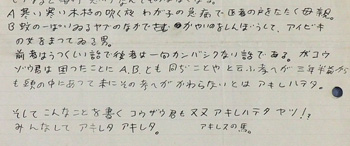 A 寒い寒い木枯の吹く晩 わが子の急病で医者の戸をたたく母親。
B 蛇の一ぱいゐるヤブのなかで のかゆいのをしんぼうして、アイビキ
の女をまつてゐる男。
前者はうつくしい話で後者は一向カンバシクない話である。がコウ
ゾウ君は困つたことに A.B.とも同じことやと云ふ考へが三年前から
も頭の中にあつて未にその考へがかわらないとは アキレハテタ。
そしてこんなことを書くコウザウ君も又又アキレハテタ ヤツ!,
みんなして アキレタ アキレタ。 アキレスの馬。